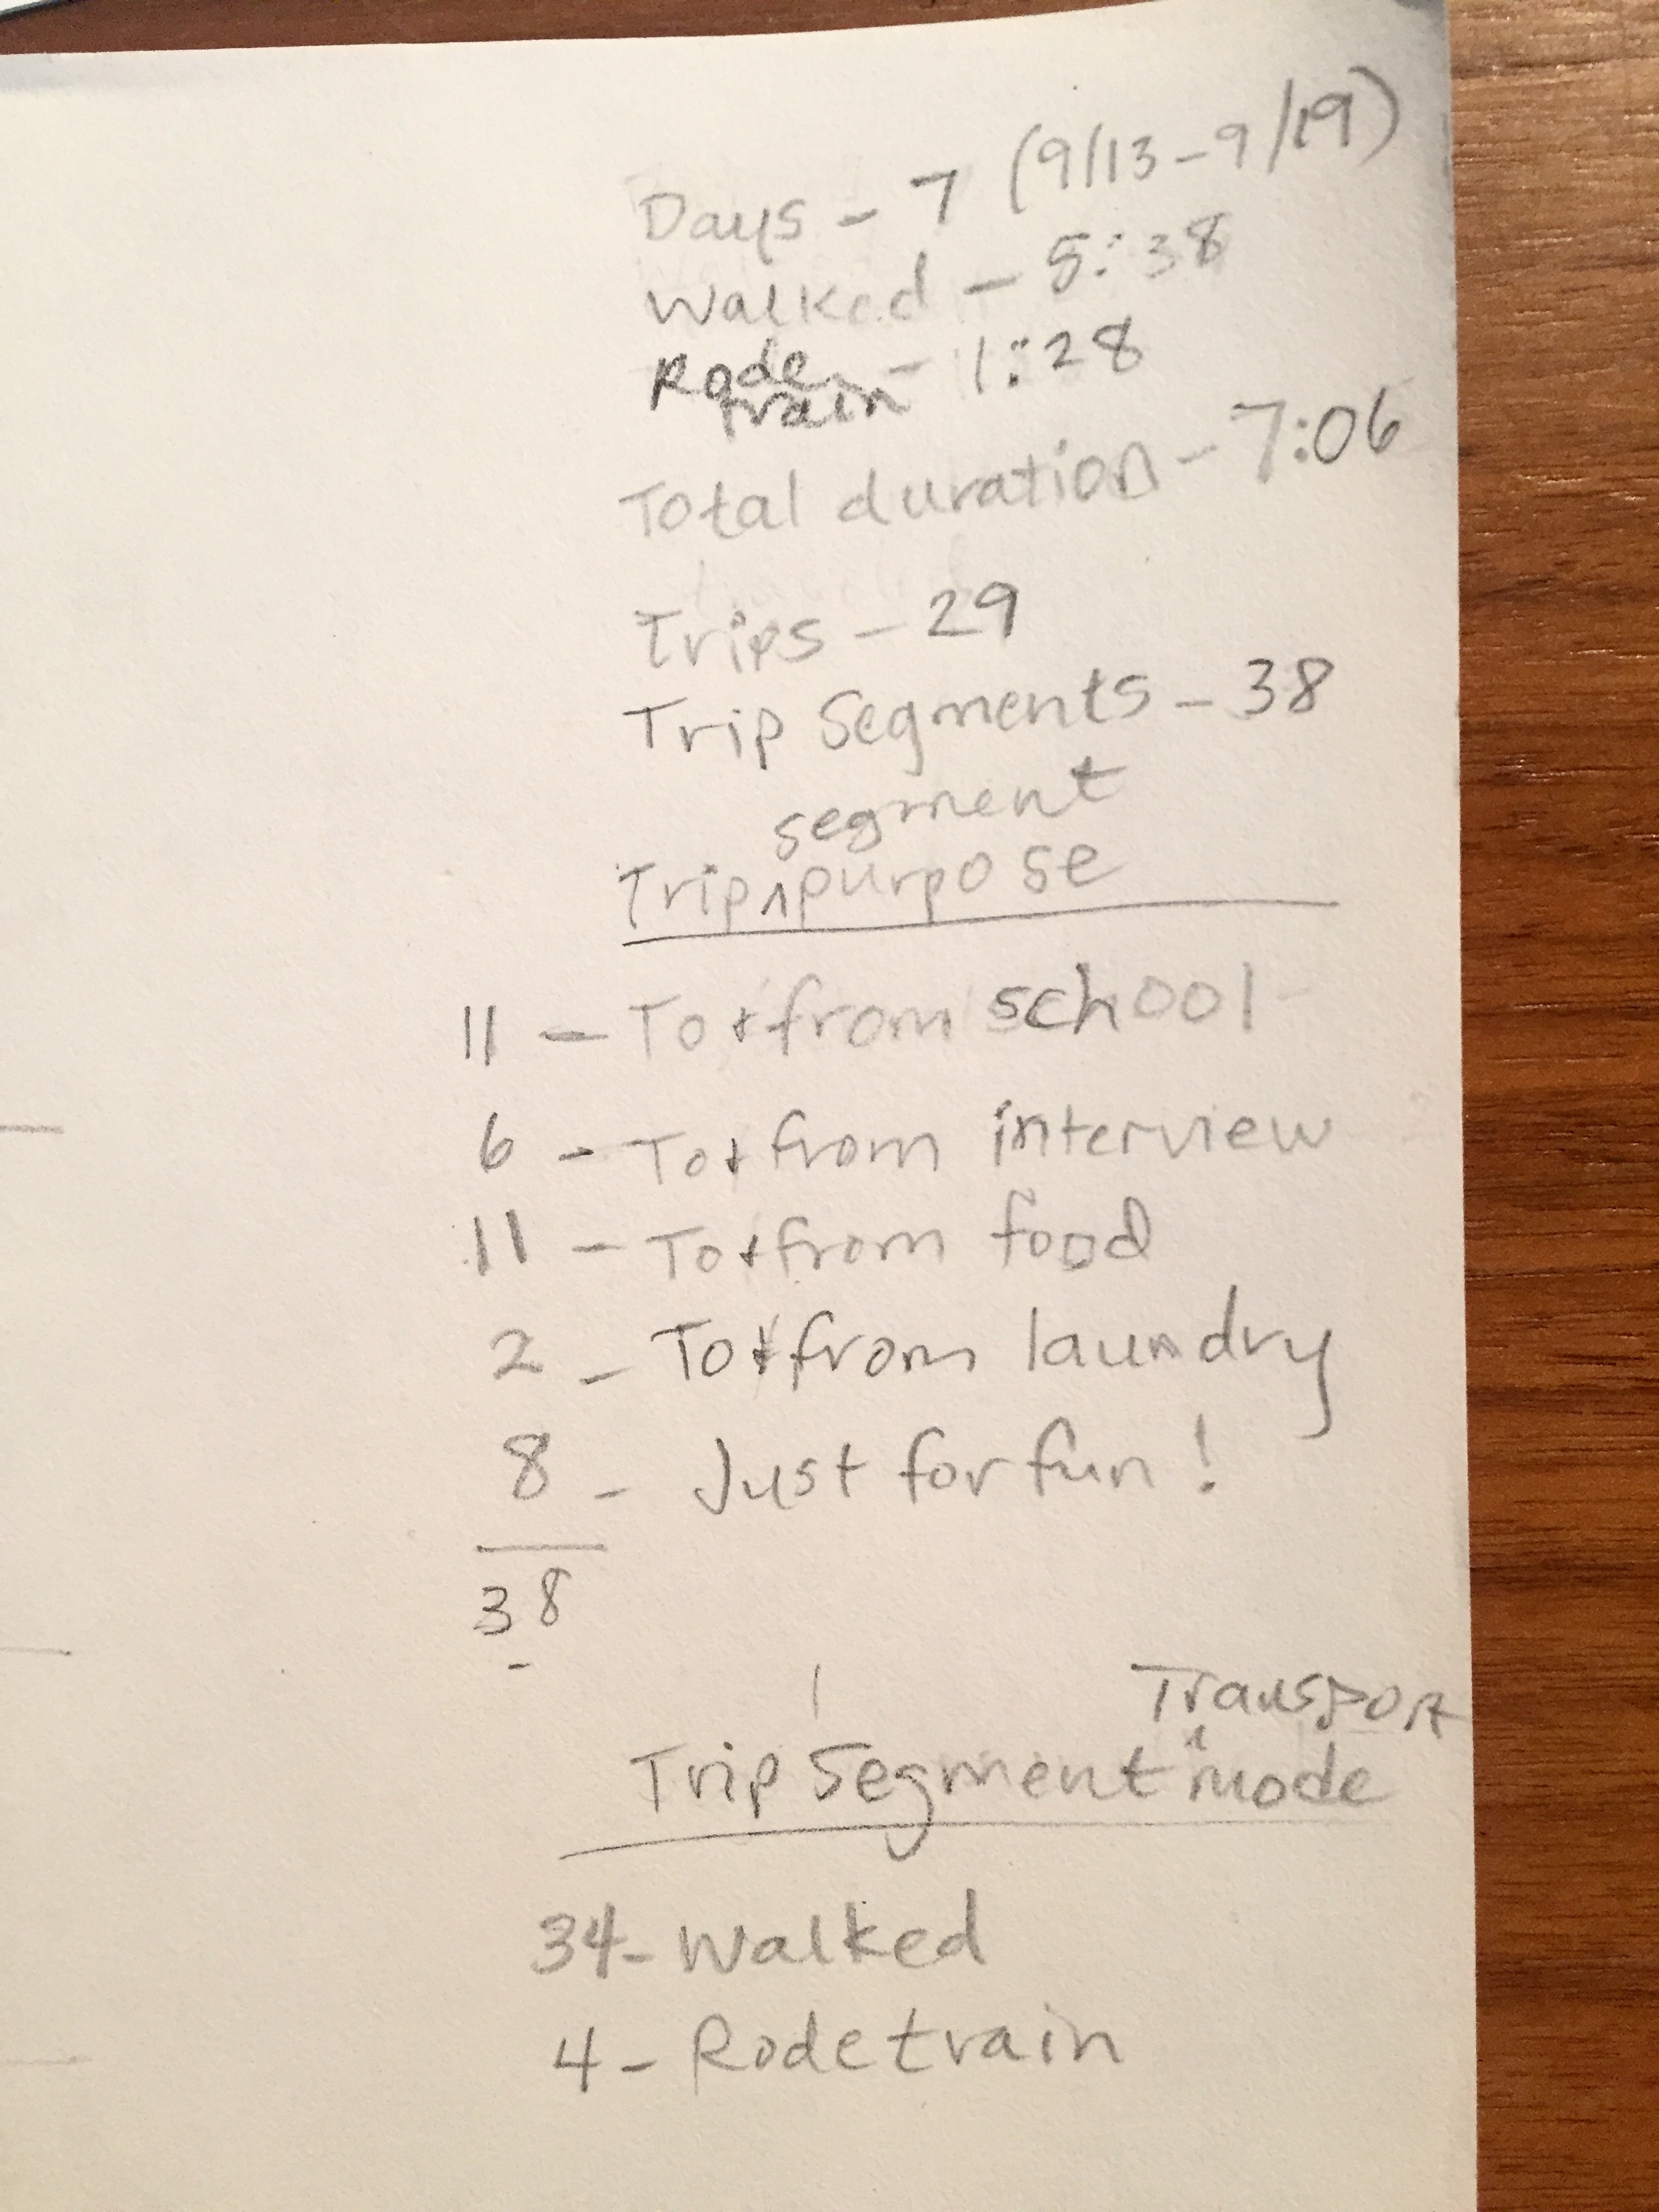 Days - 7 (9/13 - 9/19)
Walked - 5:38
Rode train - 1:28
Total duration - 7:06
Trips - 29
Trip Segments - 38
segment
Trip ^ purpose
11 - To + from school
6 - To + from interview
11 - To + from food
2 - To + from laundry
8 - Just for fun!
38
Transport
Trip Segment ^ mode
34 - Walked
4 - Rode train